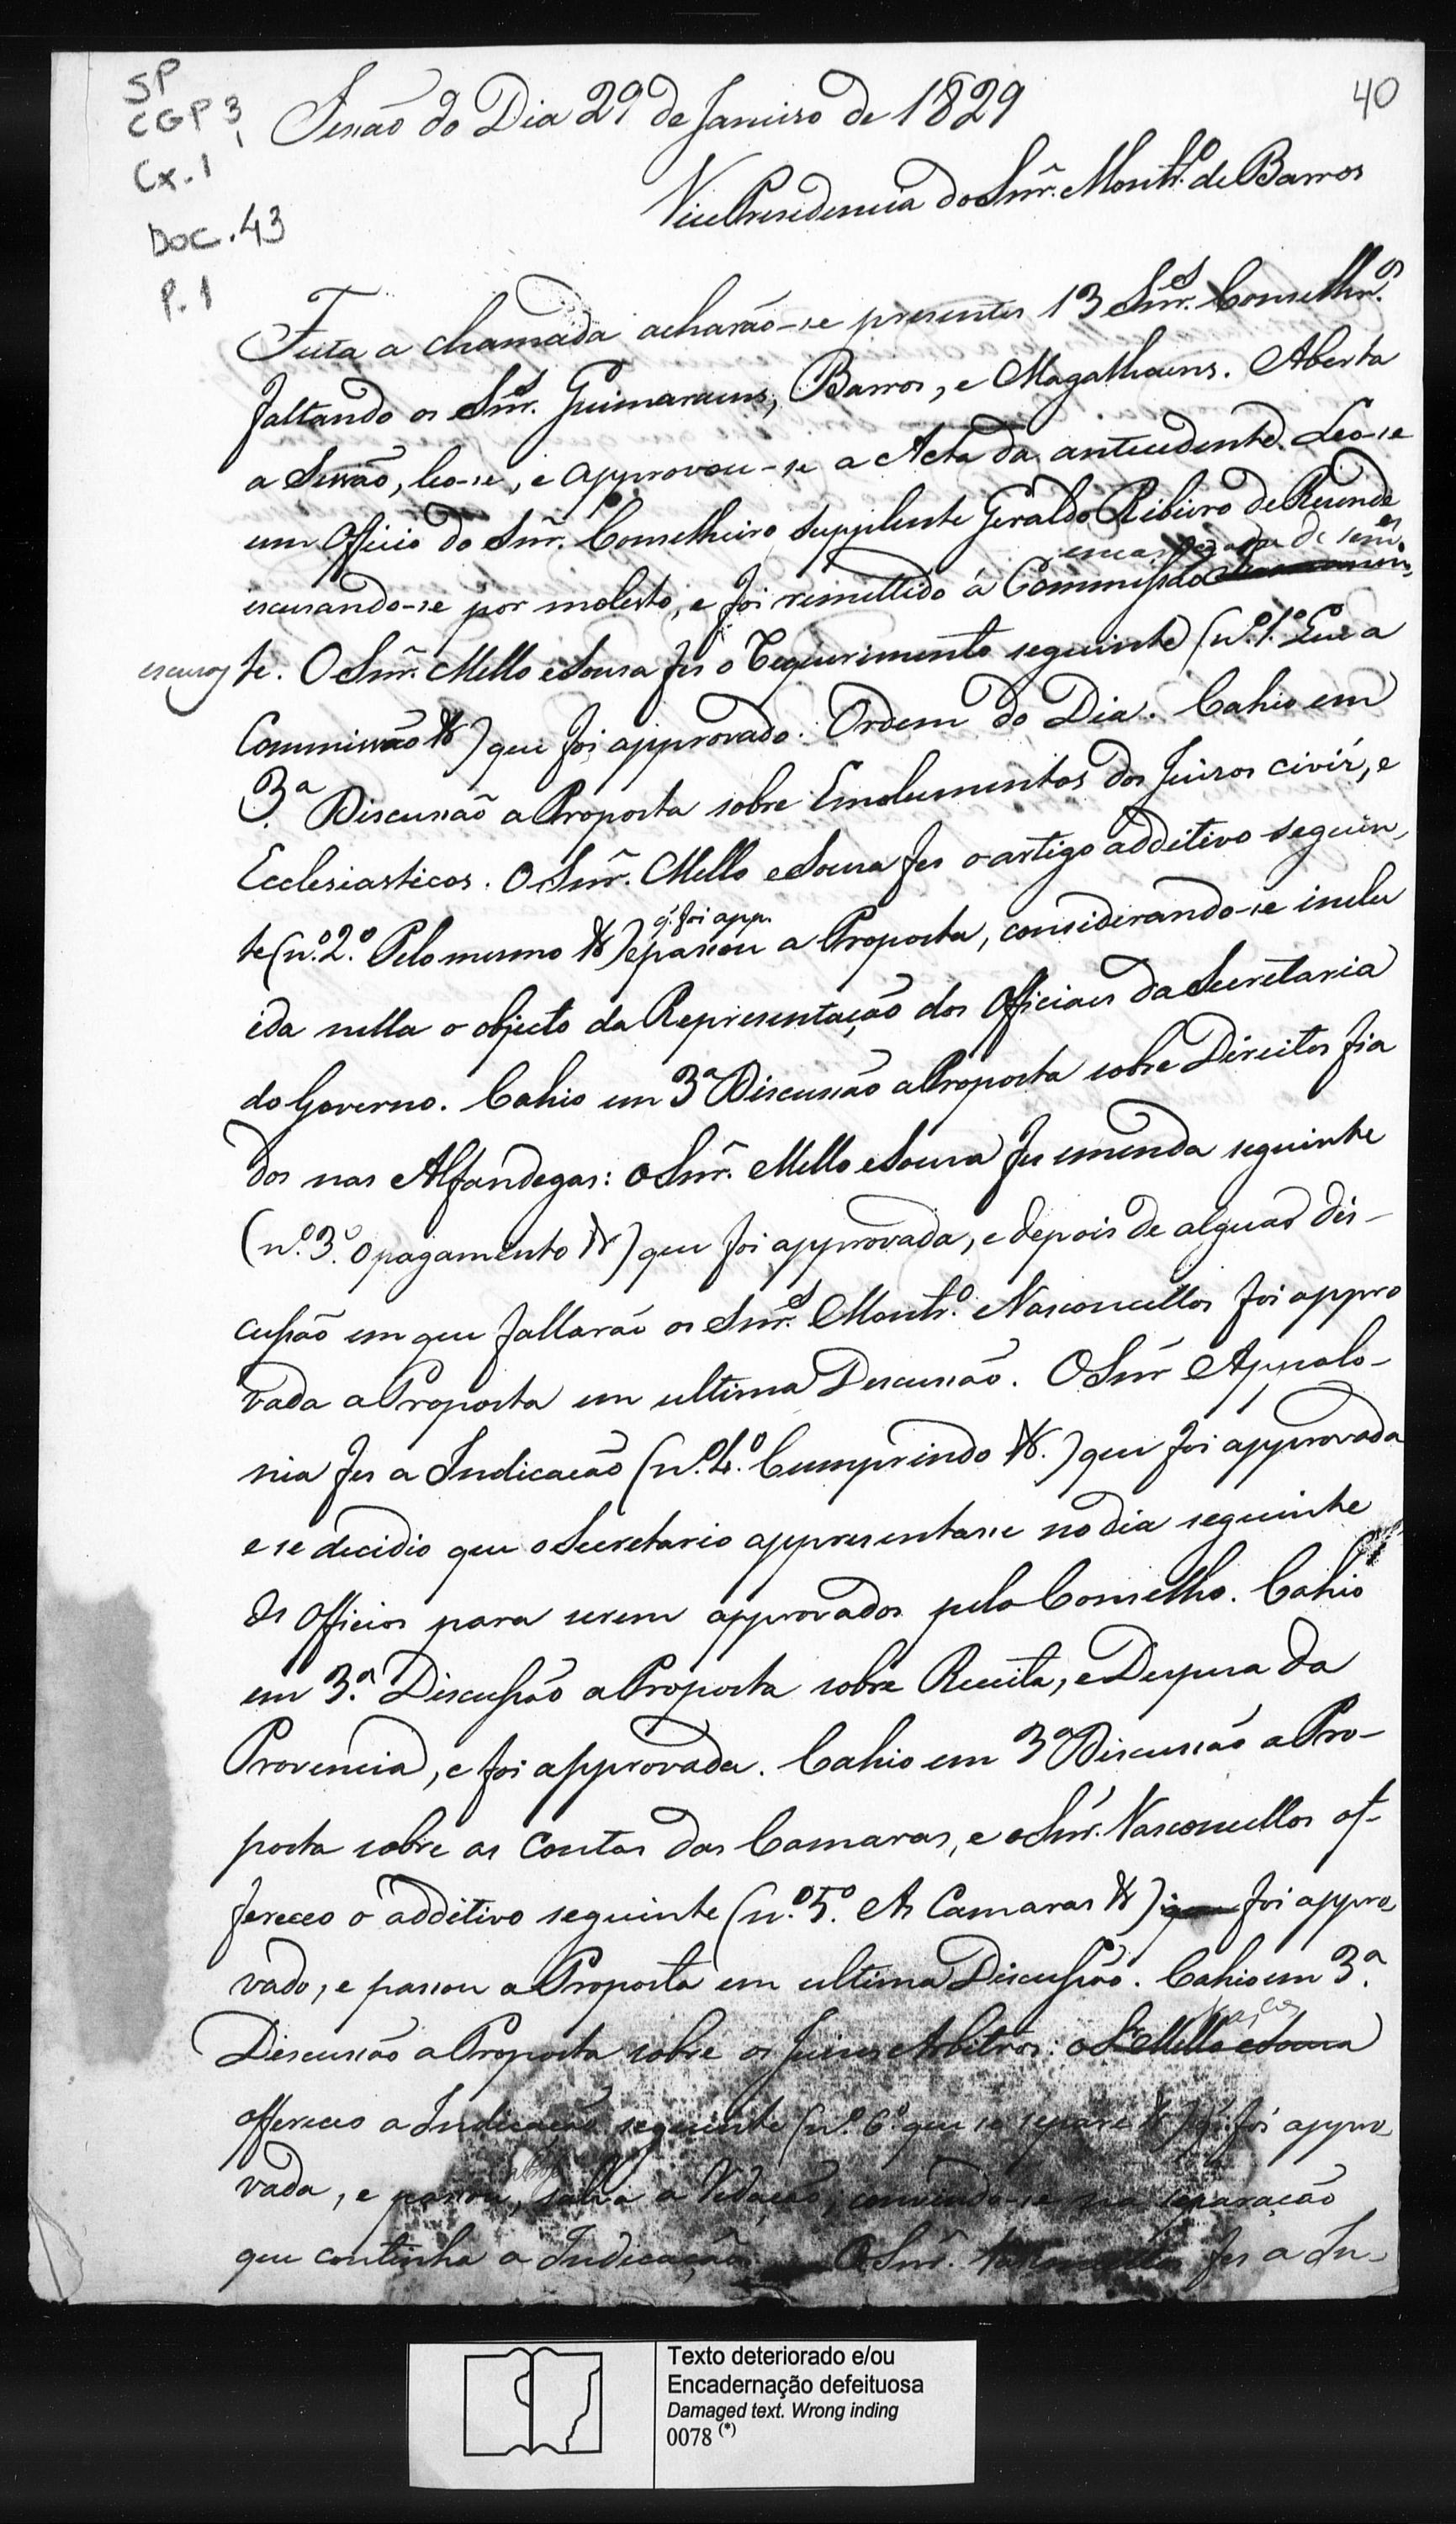 SP
CGP 3,
Cx. 1
Doc. 43
P. 1
40
Sessão do Dia 29 de Janeiro de 1829
Vice Presidencia do Snr. Montr.º de Barros
Feita a chamada acharão-se presentes 13 Snr.s Conselhr.os
faltando os Snr.s Guimaraens, Barros, e Magalhaens. Aberta
a Sessão, leo-se, e approvou-se a Acta da antecedente. Leo-se
um Officio do Snr. Conselheiro Supplente Geraldo Ribeiro de Resende
encarregada de
escusando-se por molesto, e foi remettido á Commissão
escusas
te. O Snr. Mello e Sousa fes o Requerimento seguinte (n.º 1.º Que a
Commissão &) que foi approvado. Ordem do Dia. Cahio em
3.ª Discussão a Proposta sobre Emolumentos dos Juisos civís, e
Ecclesiasticos. O Snr. Mello e Sousa fes o artigo additivo seguin,
q. foi app.
te (n.º 2.º Pelo mesmo &) e passou a Proposta, considerando-se inclu
ida nella o objecto da Representação dos Officiaes da Secretaria
do Governo. Cahio em 3.ª Discussão a Proposta sobre Direitos fia
dos nas Alfandegas: o Snr. Mello e Sousa fes emenda seguinte
(n.º 3.º o pagamento &) que foi approvada, e depois de alguãs dis-
cussão em que fallarão os Snr.s Montr.º Vasconcellos foi appro
vada a Proposta em ultima Discussão. O Snr Appolo-
nia fes a Indicacão (n.º 4.º Cumprindo &.) que foi approvada
e se decidio que o Secretario appresentasse no dia seguinte
os Officios para serem approvados pelo Conselho. Cahio
em 3.ª Discussão a Proposta sobre Receita, e Despesa da
Provencia, e foi approvada. Cahio em 3.ª Discussão a Pro-
posta sobre as Contas das Camaras, e o Snr. Vasconcellos of-
fereceo o additivo seguinte (n.º 5.º As Camaras &) que foi appro,
vado, e passou a Proposta em ultima Discussão. Cahio em 3.ª
Discussão a Proposta sobre os Juises Arbitros: o Sr. Mello e Sousa
offereceo a Indicação seguinte (n.º 6.º que se separe &) q. foi appro,
a Prop.
vada, e passou, salva a Redação, convindo-se na separação
que continha a Indicação. O Snr. Vasconcellos fes a In-
Texto deteriorado e/ou
Encadernação defeituosa
Damaged text. Wrong inding
0078 (*)